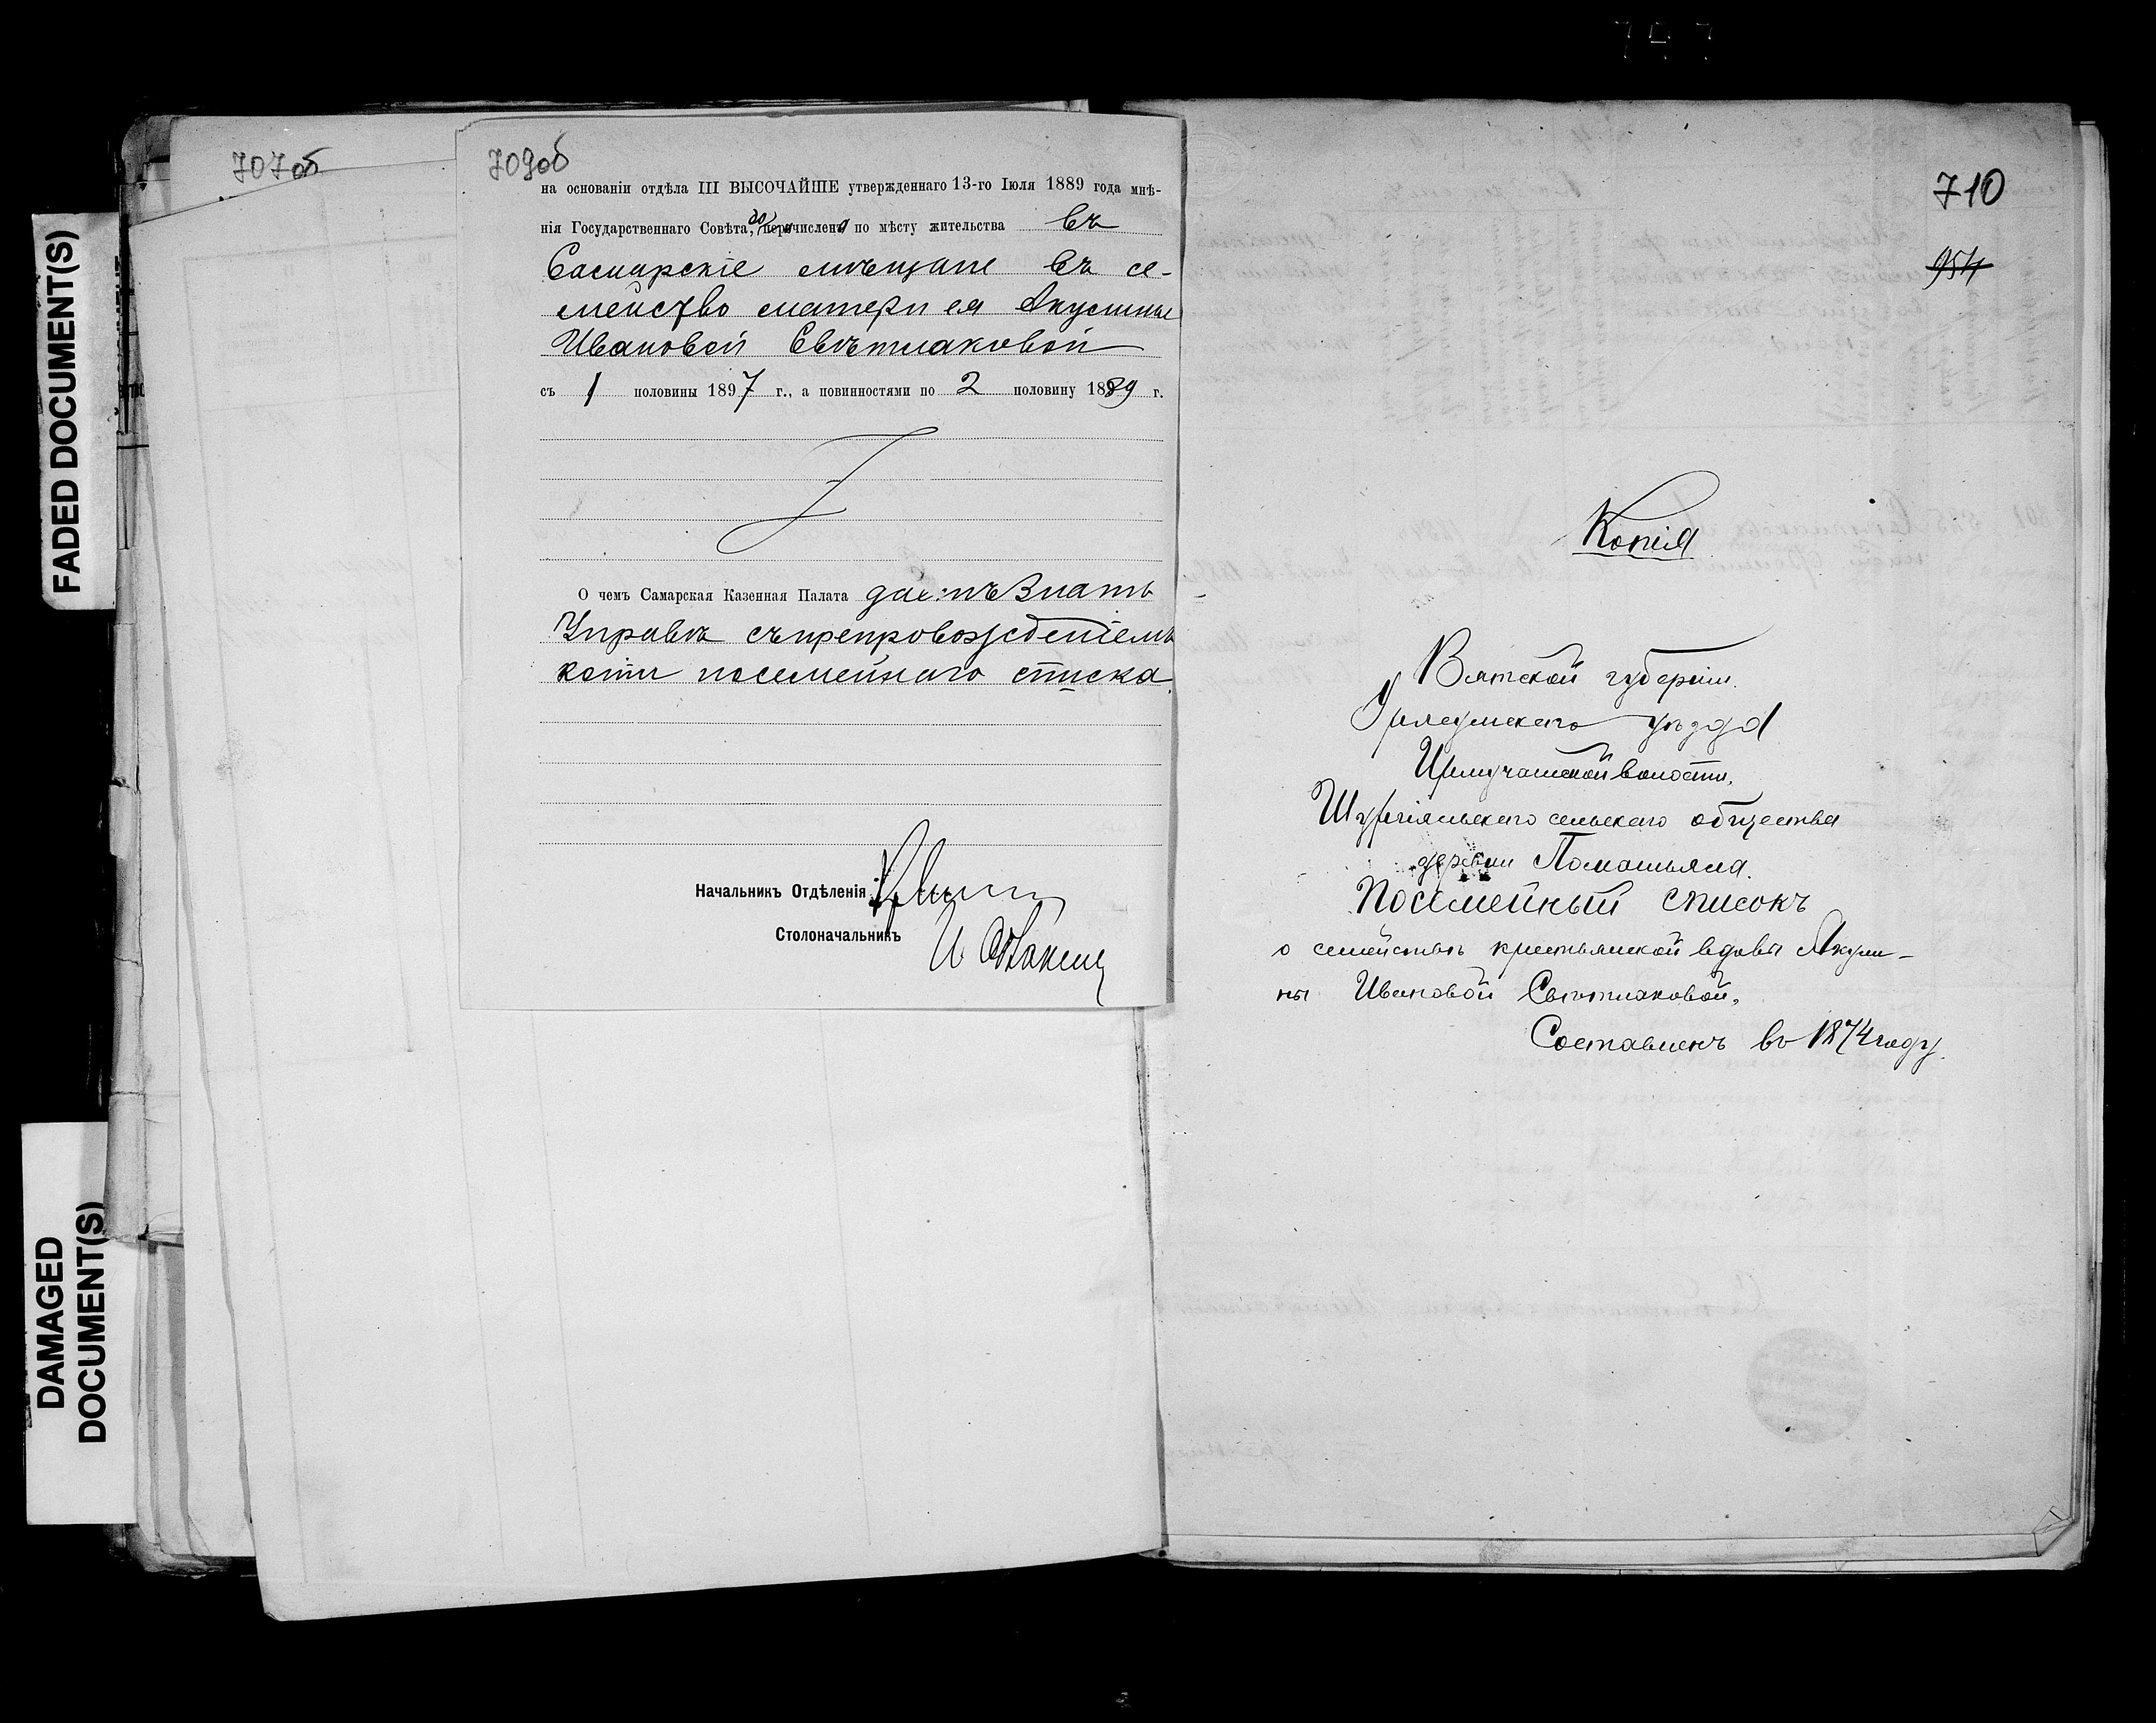 FADED DOCUMENT(S)
DAMAGED
DOCUMENT(S)
707об
709об
на основаніи отдѣла III ВЫСОЧАЙШЕ утвержденнаго 13-го Іюля 1889 года мнѣ-
нія Государственнаго Совѣта, причислена по мѣсту жительства въ
Самарскіе мѣщане въ се-
мейство матери ея Акулины
Ивановой Свѣтлаковой
съ 1 половины 1897 г., а повинностями по 2 половину 1889 г.
О чемъ Самарская Казенная Палата даетъ знать
Управѣ съ препровожденіемъ
копіи посемейнаго списка.
Начальникъ Отдѣленія
Столоначальникъ
710
954
Копія
Вятской губерніи
Уржумскаго уѣзда
волости,
сельскаго общества
деревни
Посемейный списокъ
о семействѣ крестьянской вдовы Акули-
ны Ивановой Свѣтлаковой.
Составленъ въ 1874 году.